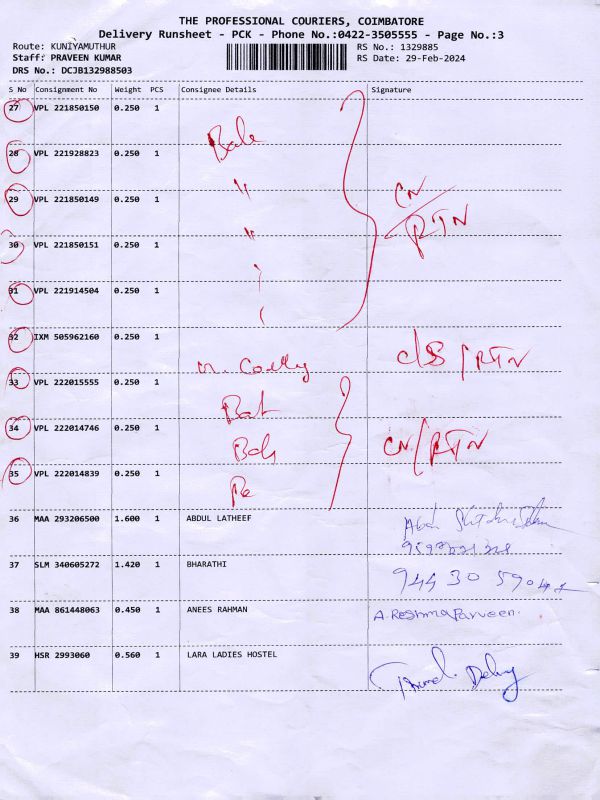 THE PROFESSIONAL COURIERS, COIMBATORE
Delivery Runsheet - PCK - Phone No.:0422-3505555 - Page No.:3
Route: KUNIYAMUTHUR
Staff: PRAVEEN KUMAR
DRS No.: DCJB132988503
RS No.: 1329885
RS Date: 29-Feb-2024
S No Consignment No Weight PCS Consignee Details Signature
27 VPL 221850150 0.250 1
28 VPL 221928823 0.250 1
"
29 VPL 221850149 0.250 1
CN/RTN
"
30 VPL 221850151 0.250 1
31 VPL 221914504 0.250 1
32 IXM 505962160 0.250 1
/RTN
33 VPL 222015555 0.250 1
34 VPL 222014746 0.250 1
CN/RTN
35 VPL 222014839 0.250 1
36 MAA 293206500 1.600 1 ABDUL LATHEEF
37 SLM 340605272 1.420 1 BHARATHI
944 30 59041
38 MAA 861448063 0.450 1 ANEES RAHMAN A. Reshma Parveen.
39 HSR 2993060 0.560 1 LARA LADIES HOSTEL